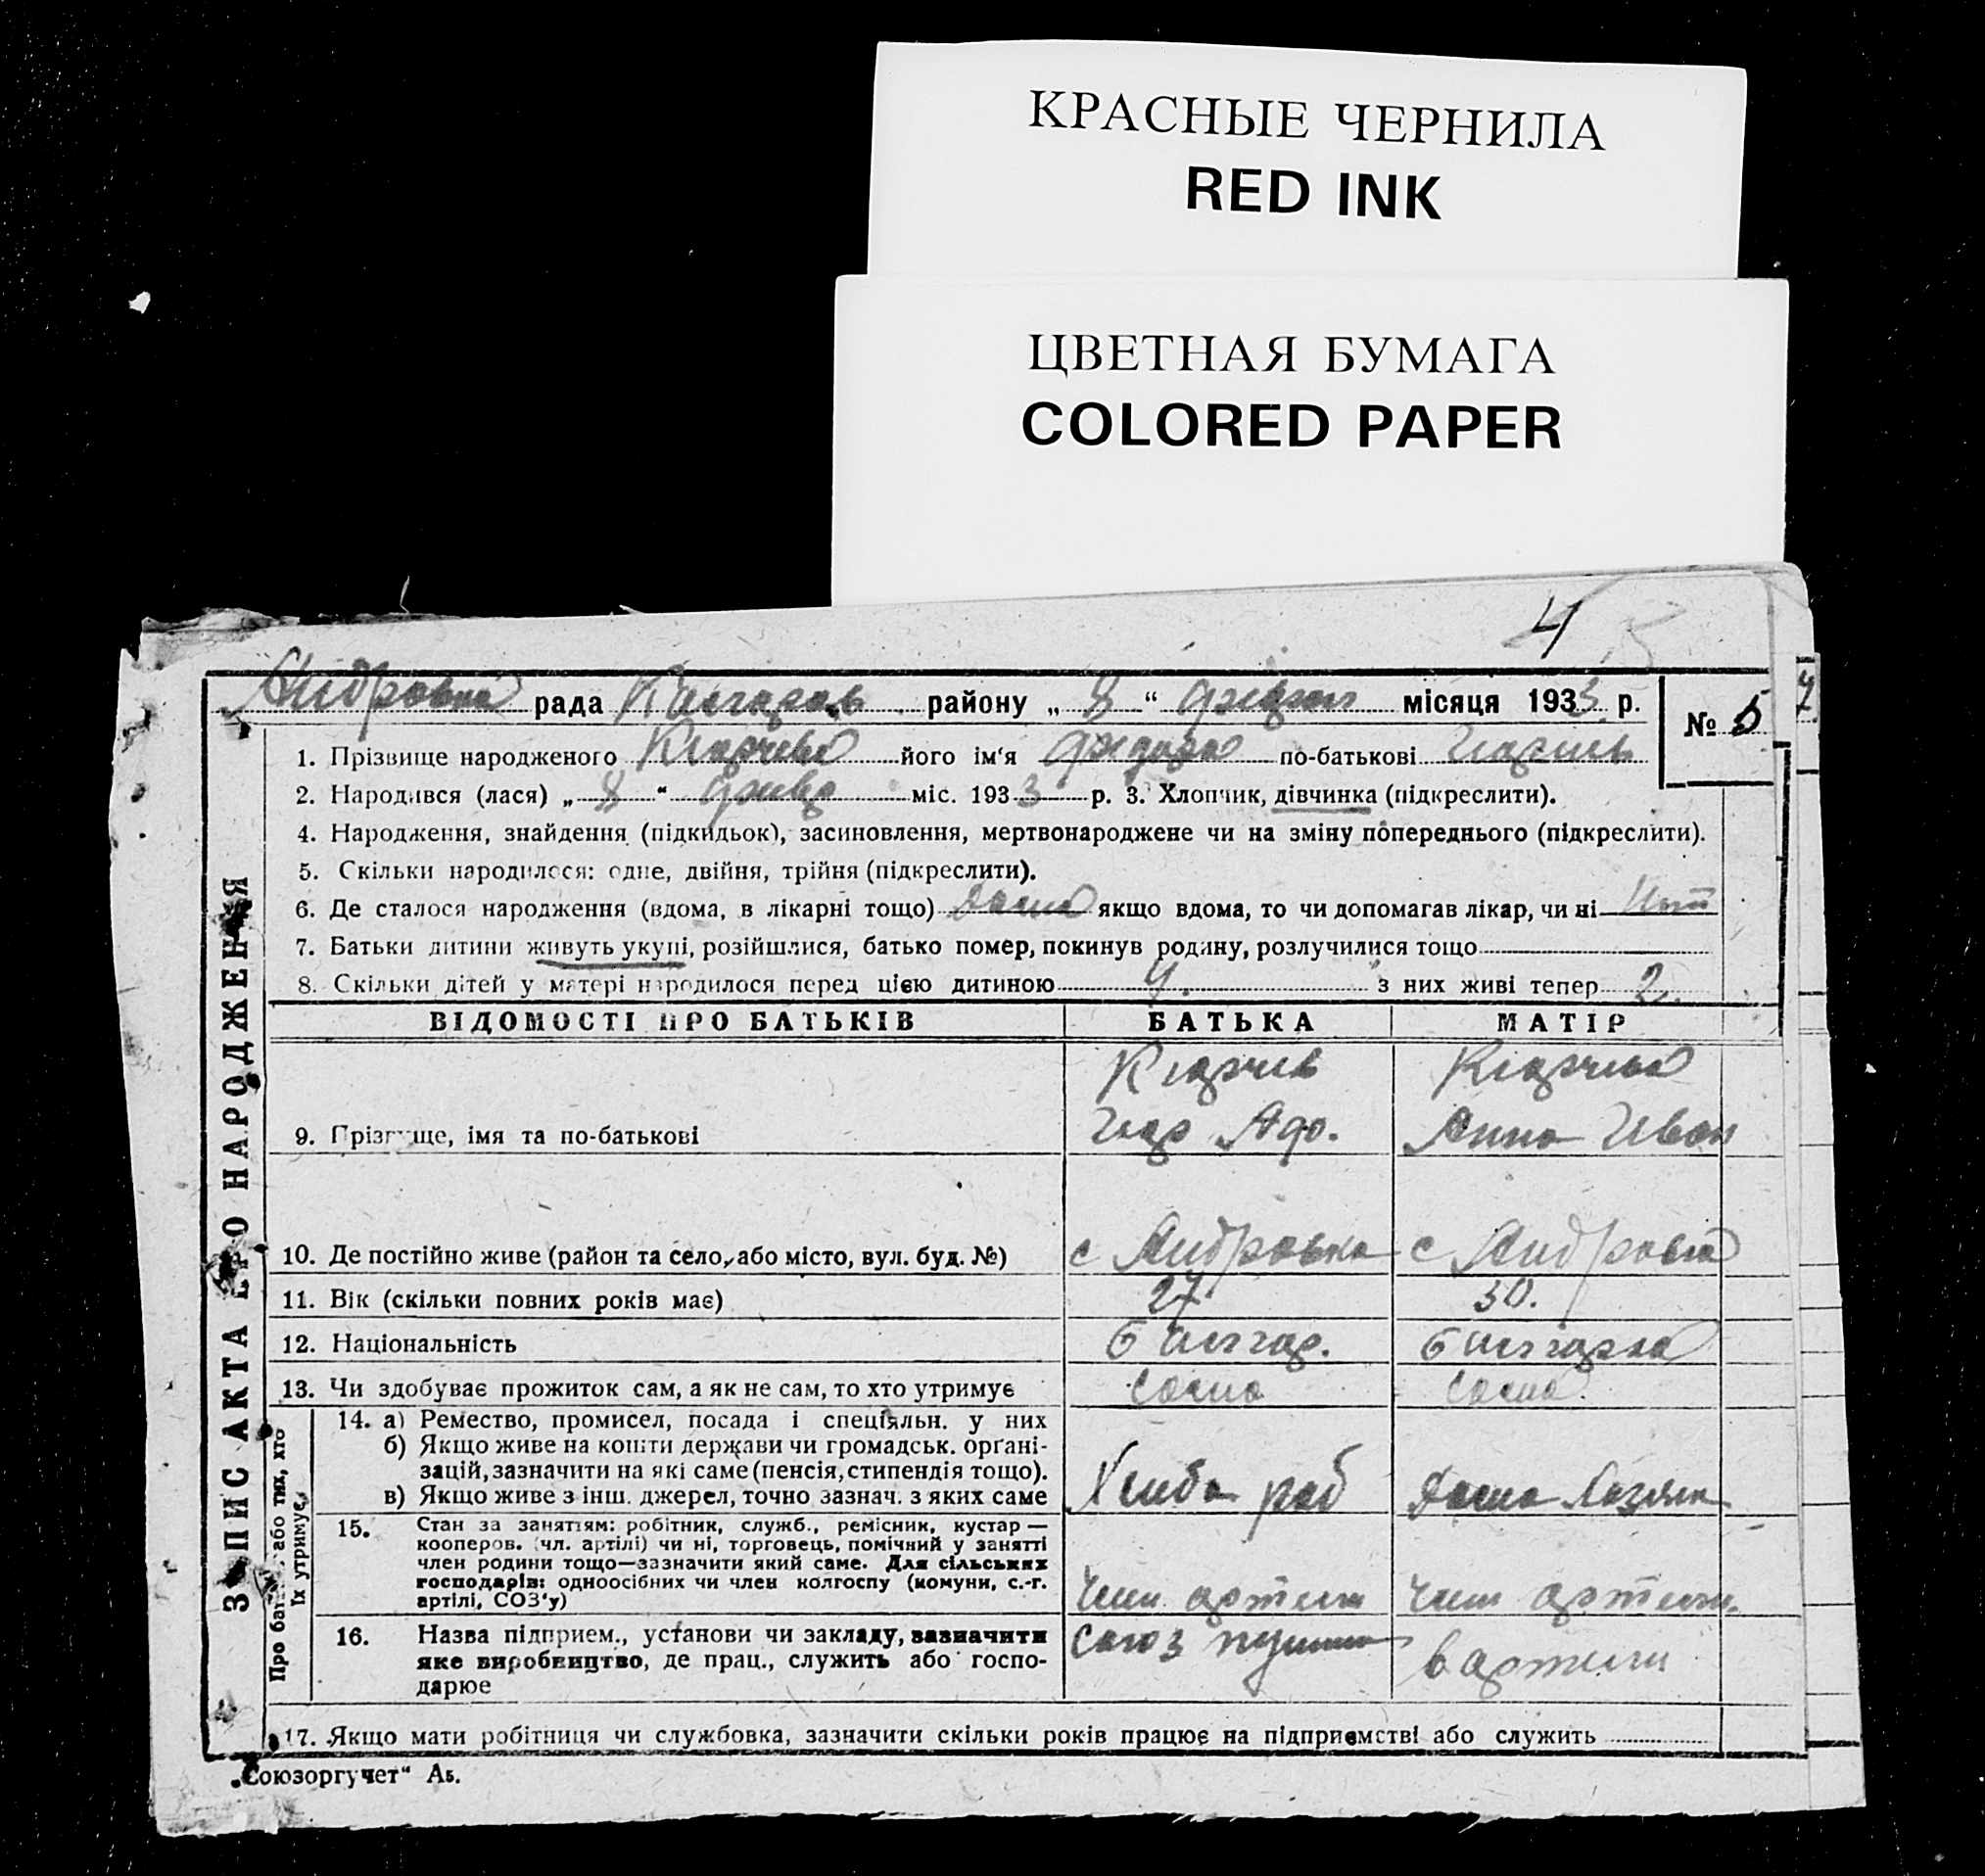 КРАСНЫЕ ЧЕРНИЛА
RED INK
ЦВЕТНАЯ БУМАГА
COLORED PAPER
4
рада району „ 8 “ місяця 1933 р. № 5
1. Прізвище народженого його ім‘я по-батькові
2. Народився (лася) „ 8 “ міс. 1933 р. 3. Хлопчик, дівчинка (підкреслити).
4. Народження, знайдення (підкидьок), засиновлення, мертвонароджене чи на зміну попереднього (підкреслити).
5. Скільки народилося: одне, двійня, трійня (підкреслити).
6. Де сталося народження (вдома, в лікарні тощо) Дома якщо вдома, то чи допомагав лікар, чи ні Нет
7. Батьки дитини живуть укупі, розійшлися, батько помер, покинув родину, розлучилися тощо
8. Скільки дітей у матері народилося перед цією дитиною 4. з них живі тепер 2.
ВІДОМОСТІ ПРО БАТЬКІВ БАТЬКА МАТІР
9. Прізвище, імя та по-батькові Анна Иван
10. Де постійно живе (район та село, або місто, вул. буд. №) с Андровка с
11. Вік (скільки повних років має) 27 30.
12. Національність болгар. болгарка
13. Чи здобуває прожиток сам, а як не сам, то хто утримує
14. а) Ремество, промисел, посада і спеціяльн. у них
б) Якщо живе на кошти держави чи громадськ. орґані-
зацій, зазначити на які саме (пенсія, стипендія тощо).
в) Якщо живе з інш. джерел, точно зазнач. з яких саме Хлебо роб Дома хозяик
15. Стан за заняттям: робітник, служб., ремісник, кустар —
кооперов. (чл. артілі) чи ні, торговець, помічний у занятті
член родини тощо—зазначити який саме. Для сільських
господарів: одноосібних чи член колгоспу (комуни, с.-г.
артілі, СОЗ‘у) член артели член артели.
16. Назва підприєм., установи чи закладу, зазначити
яке виробництво, де прац., служить або госпо-
дарює в артели
17. Якщо мати робітниця чи службовка, зазначити скільки років працює на підприємстві або служить
ЗАПИС АКТА ПРО НАРОДЖЕННЯ
„Союзоргучет“ Аб.